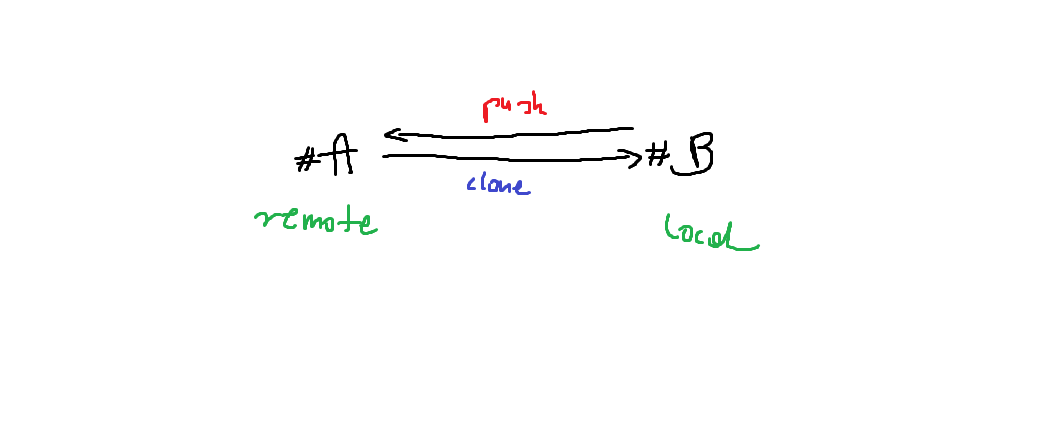 push
#A #B
clone
remote local